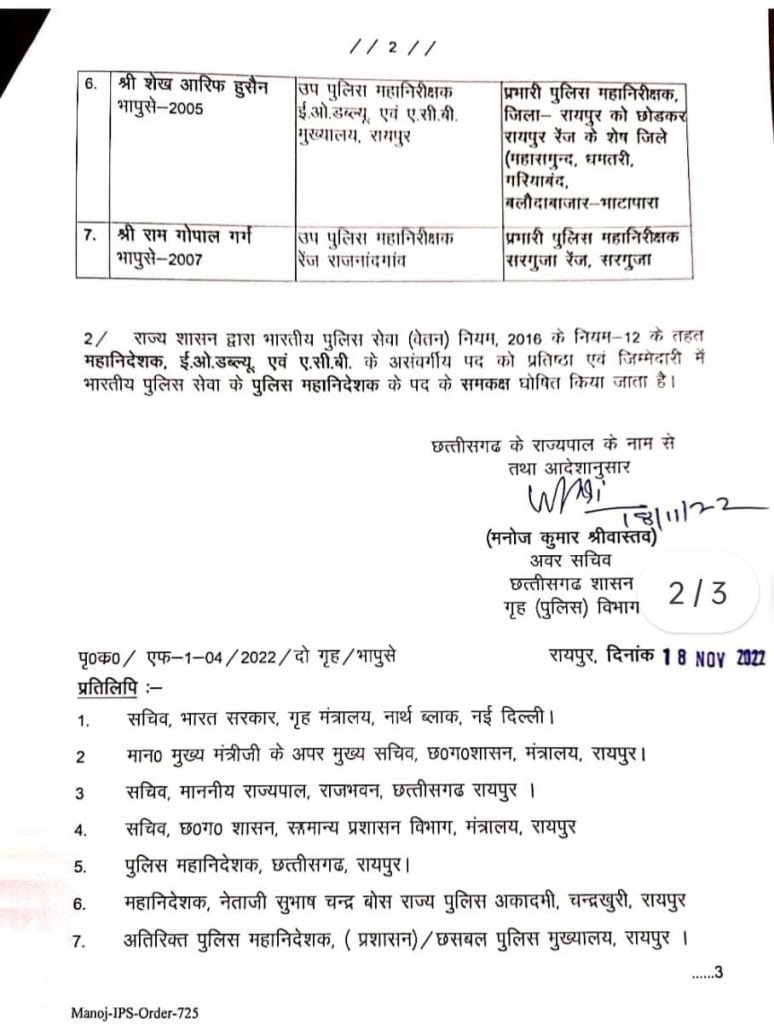 //2//
6. श्री शेख आरिफ हुसैन उप पुलिस महानिरीक्षक प्रभारी पुलिस महानिरीक्षक,
भापुसे-2005 ई.ओ.डब्ल्यू. एवं ए.सी.बी. जिला- रायपुर को छोडकर
मुख्यालय, रायपुर रायपुर रेंज के शेष जिले
(महासमुन्द, धमतरी,
गरियाबंद,
बलौदाबाजार-भाटापारा
7. श्री राम गोपाल गर्ग उप पुलिस महानिरीक्षक प्रभारी पुलिस महानिरीक्षक
भापुसे-2007 रेंज राजनांदगांव सरगुजा रेंज, सरगुजा
2/ राज्य शासन द्वारा भारतीय पुलिस सेवा (वेतन) नियम, 2016 के नियम-12 के तहत
महानिदेशक, ई.ओ.डब्ल्यू. एवं ए.सी.बी. के असंवर्गीय पद को प्रतिष्ठा एवं जिम्मेदारी में
भारतीय पुलिस सेवा के पुलिस महानिदेशक के पद के समकक्ष घोषित किया जाता है।
छत्तीसगढ के राज्यपाल के नाम से
तथा आदेशानुसार
18/11/22
(मनोज कुमार श्रीवास्तव)
अवर सचिव
छत्तीसगढ शासन
गृह (पुलिस) विभाग
2/3
पृ0क0/ एफ-1-04/2022/दो गृह/भापुसे रायपुर, दिनांक 18 NOV 2022
प्रतिलिपि :-
1. सचिव, भारत सरकार, गृह मंत्रालय, नार्थ ब्लाक, नई दिल्ली।
2 मान0 मुख्य मंत्रीजी के अपर मुख्य सचिव, छ0ग0शासन, मंत्रालय, रायपुर।
3 सचिव, माननीय राज्यपाल, राजभवन, छत्तीसगढ रायपुर ।
4. सचिव, छ0ग0 शासन, सामान्य प्रशासन विभाग, मंत्रालय, रायपुर
5. पुलिस महानिदेशक, छत्तीसगढ, रायपुर।
6. महानिदेशक, नेताजी सुभाष चन्द्र बोस राज्य पुलिस अकादमी, चन्द्रखुरी, रायपुर
7. अतिरिक्त पुलिस महानिदेशक, ( प्रशासन)/छसबल पुलिस मुख्यालय, रायपुर ।
......3
Manoj-IPS-Order-725